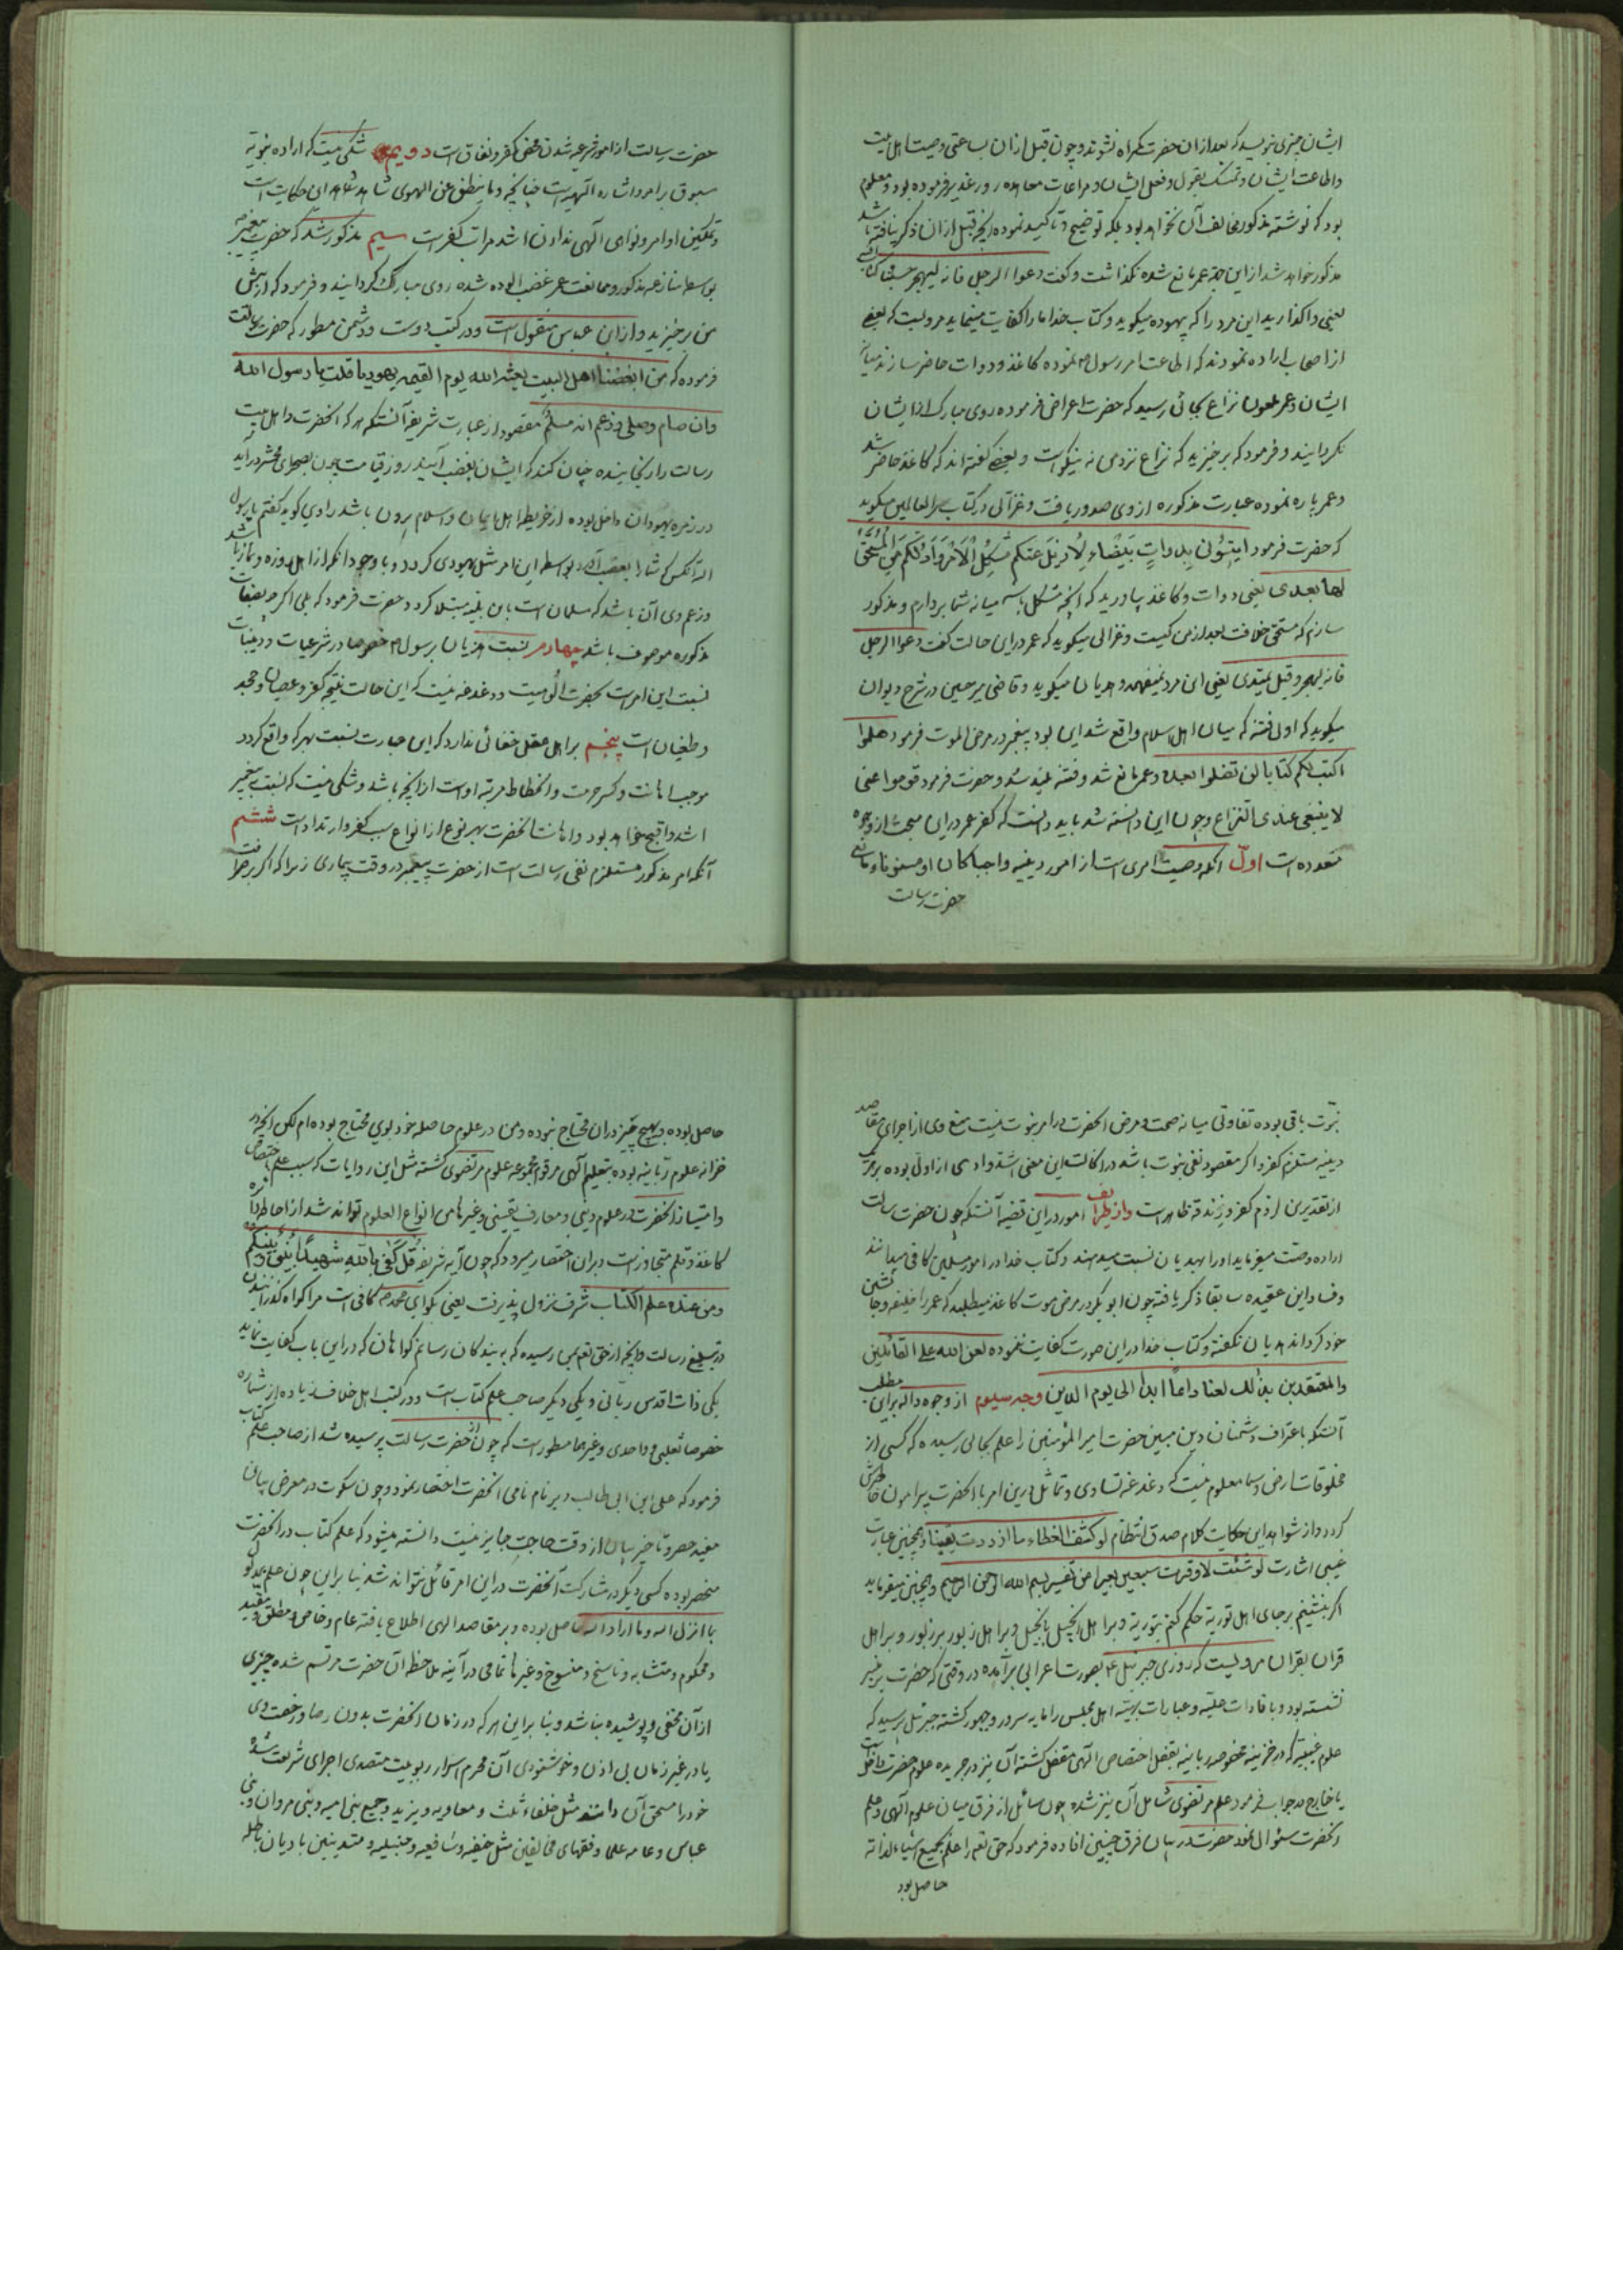 ایشان چیزی نویسد که بعد از ان حضرت گمراه نشوند و چون قبل از ان بساعتی وصیت اهل بیت
واطاعت ایشان و تمسک بقول و فعل ایشان و مراعات معاهده روز غدیر فرموده بود و معلوم
بود که نوشته مذکور مخالف آن نخواهد بود بلکه توضیح و تاکید نموده انچه قبل از ان ذکر یافته باشد
مذکور خواهد شد از این جهة عمر مانع شده نگذاشت و گفت دعوا الرجل فانه لیهجر حسبنا کتاب الله
یعنی واگذارید این مرد را که بیهوده میگوید و کتاب خدا ما را کفایت مینماید مرویست که بعضی
از اصحاب اراده نمودند که اطاعت امر رسول نموده کاغذ و دوات حاضر سازند میانه
ایشان و عمر ملعون نزاع بجائی رسید که حضرت اعراض فرموده روی مبارک از ایشان
بگردانیند و فرمود که برخیزید که نزاع نزد من نه نیکوست و بعضی گفته‌اند که کاغذ حاضر شد
و عمر پاره نموده عبارت مذکوره از وی صدور یافت و غزالی در کتاب سر العالمین میگوید
که حضرت فرمود ایتونی بدوات بیضاء لازیل عنکم مشکل الامر و اذکر لکم من المستحق
لها بعدی یعنی دوات و کاغذ بیاورید که انچه مشکل باشد میانه شما بردارم و مذکور
سازم که مستحق خلافت بعد از من کیست و غزالی میگوید که عمر در این حالت گفت دعوا الرجل
فانه لیهجر وقیل یهذی یعنی این مرد نمیفهمد و هذیان میگوید و قاضی میر حسین در شرح دیوان
میگوید که اول فتنه که میان اهل اسلام واقع شد این بود پیغمبر در مرض الموت فرمود هلموا
اکتب لکم کتابا لن تضلوا بعده و عمر مانع شد و فتنه بلند شد و حضرت فرمود قوموا عنی
لا ینبغی عندی النزاع و چون این دانسته شد باید دانست که کفر عمر در این مبحث از وجوه
متعدده است اول انکه وصیت امری است از امور دینیه واجبا کان او مسنونا و مانع
حضرت رسالت
حضرت رسالت از امور شرعیه شدن محض کفر و نفاق است دویم شکی نیست که اراده نبویه
مسبوق بر امر و اشاره الهیه است چنانچه و ما ینطق عن الهوی شاهد این حکایت است
و تمکین اوامر و نواهی الهی ندادن اشد مراتب کفر است سیم مذکور شد که حضرت پیغمبر
بواسطه منازعه مذکور و ممانعت عمر غضب الوده شده روی مبارک گردانیند و فرمود که از پیش
من برخیزید و از ابن عباس منقول است و در کتب دوست و دشمن مسطور که حضرت رسالت
فرموده که من ابغضنا اهل البیت بعثه الله یوم القیمه یهودیا قلت یا رسول الله
وان صام وصلی وزعم انه مسلم مقصود از عبارت شریفه آنستکه هر که انحضرت و اهل بیت
رسالت را رنجانیده چنان کند که ایشان بغضب آیند روز قیامت چون بصحرای محشر دراید
در زمره یهودان داخل بوده از خریطه اهل ایمان و اسلام برون باشد راوی گوید گفتم یا رسول
الله انکس که شما را بغضب آورد بواسطه این امر مثل یهودی گردد و با وجود انکه از اهل روزه و نماز باشد
و زعم وی آن باشد که مسلمان است باین بلیه مبتلا گردد حضرت فرمود که بلی اگر چه بصفات
مذکوره موصوف باشد چهارم نسبت هذیان برسول خصوصا در شرعیات و دینیات
نسبت این امر است بحضرت الوهیت و دغدغه نیست که این حالت نتیجه کفر و عصیان و جحد
و طغیان است پنجم بر اهل عقل خفائی ندارد که این عبارت نسبت بهر که واقع گردد
موجب اهانت و کسر حرمت و انحطاط مرتبه اوست از انچه باشد و شکی نیست که نسبت به پیغمبر
اشد و اقبح خواهد بود و اهانت انحضرت بهر نوع از انواع سبب کفر و ارتداد است ششم
آنکه امر مذکور مستلزم نفی رسالت است از حضرت پیغمبر در وقت بیماری زیرا که اگر بر صرافت
نبوت باقی بوده تفاوتی میانه صحت و مرض انحضرت در امر نبوت نیست منع وی از اجرای مقاصد
دینیه مستلزم کفر و اگر مقصود نفی نبوت باشد دراکالت این معنی اشد و ادهی از اول بوده بر هر یک
از تقدیرین لزوم کفر و زندقه ظاهر است و از ظرایف امور در این قضیه آنستکه چون حضرت رسالت
اراده وصیت میفرماید او را بهذیان نسبت میدهند و کتاب خدا در امور مسلمین کافی میدانند
و فساد این عقیده سابقا ذکر یافته چون ابو بکر در مرض موت کاغذ میطلبد که عمر را خلیفه و جانشین
خود گرداند هذیان نگفته و کتاب خدا در این صورت کفایت ننموده لعن الله علی القائلین
والمعتقدین بذلک لعنا دائما ابدا الی یوم الدین وجه سیوم از وجوه داله بر این مطلب
آنستکه باعتراف دشمنان دین مبین حضرت امیر المؤمنین را علم بجائی رسیده که کسی از
مخلوقات ارض و سما معلوم نیست که دغدغه تساوی و تماثل در این امر با انحضرت پیرامون خاطرش
گردد و از شواهد این حکایت کلام صدق انتظام لو کشف الغطاء ما ازددت یقینا و همچنین عبارت
غیبی اشارت لو شئت لاوقرت سبعین بعیرا من تفسیر بسم الله الرحمن الرحیم و همچنین میفرماید
اگر بنشینم بر جای اهل توریة حکم کنم بتوریة و بر اهل انجیل بانجیل و بر اهل زبور بر زبور و بر اهل
قران بقران مرویست که روزی جبرئیل ع بصورت اعرابی برآمده در وقتی که حضرت بر منبر
نشسته بود و بافادات علیه و عبارات بهیه اهل مجلس را مایه سرور و حبور گشته جبرئیل پرسید که
علوم غیبیه که در خزینه مخصوصه ربانیه بقفل اختصاص الهی مقفل گشته آن نیز در جریده علوم حضرت داخل است
یا خارج در جواب فرمود علم مرتضوی شامل آن نیز شده چون سائل از فرق میان علوم الهی و علم
انحضرت سئوال نمود حضرت در بیان فرق چنین افاده فرمود که حق تعم را علم بجمیع اشیاء لذاته
حاصل بود
حاصل بوده و بهیچ چیز در ان محتاج نبوده و من در علوم حاصله خود بوی محتاج بوده‌ام لکن انچه در
خزانه علوم ربانیه بوده بتعلیم الهی مرقوم مجموعه علوم مرتضوی گشته مثل این روایات که سبب علم اختصاص
و امتیاز انحضرت در علوم دینی و معارف یقینی و غیرها من انواع العلوم تواند شد از احاطه دایره
کاغذ و قلم متجاوز است و بر ان اختصار میرود که چون آیه شریفه قل کفی بالله شهیدا بینی و بینکم
ومن عنده علم الکتاب شرف نزول پذیرفت یعنی بگو ای محمد کافی است مرا گواه گذرانیدن
در تبلیغ رسالت و انچه از حق تعم بمن رسیده که به بندگان رسانم گواهان که در این باب کفایت نماید
یکی ذات اقدس ربانی و یکی دیگر صاحب علم کتاب است و در کتب اهل خلاف زیاده از شماره
خصوصا ثعلبی و واحدی و غیرهما مسطور است که چون از حضرت رسالت پرسیده شد از صاحب علم کتاب
فرمود که علی ابن ابی طالب و بر نام نامی انحضرت اختصار نمود و چون سکوت در معرض بیان
مفید حصر و تاخیر بیان از وقت حاجت جایز نیست دانسته میشود که علم کتاب در انحضرت
منحصر بوده کسی دیگر در مشارکت آنحضرت در این امر قائل نتواند شد بنا بر این چون علم بمدلول
ما انزل الله و ما اراد الله حاصل بوده و بر مقاصد الهی اطلاع یافته عام و خاص و مطلق و مقید
و محکوم و متشابه و ناسخ و منسوخ و غیرها تمامی در آینه ملاحظه آن حضرت مرتسم شده چیزی
از آن مخفی و پوشیده نباشد و بنا بر این هر که در زمان انحضرت بدون رضا و رخصت وی
یا در غیر زمان بی اذن و خوشنودی آن محرم اسرار ربوبیت متصدی اجرای شریعت شده
خود را مستحق آن دانند مثل خلفاء ثلث و معاویه و یزید و جمیع بنی امیه و بنی مروان و بنی
عباس و عامه علما و فقهای مخالفین مثل حنیفه و شافعیه و حنبلیه و متدینین بادیان باطله